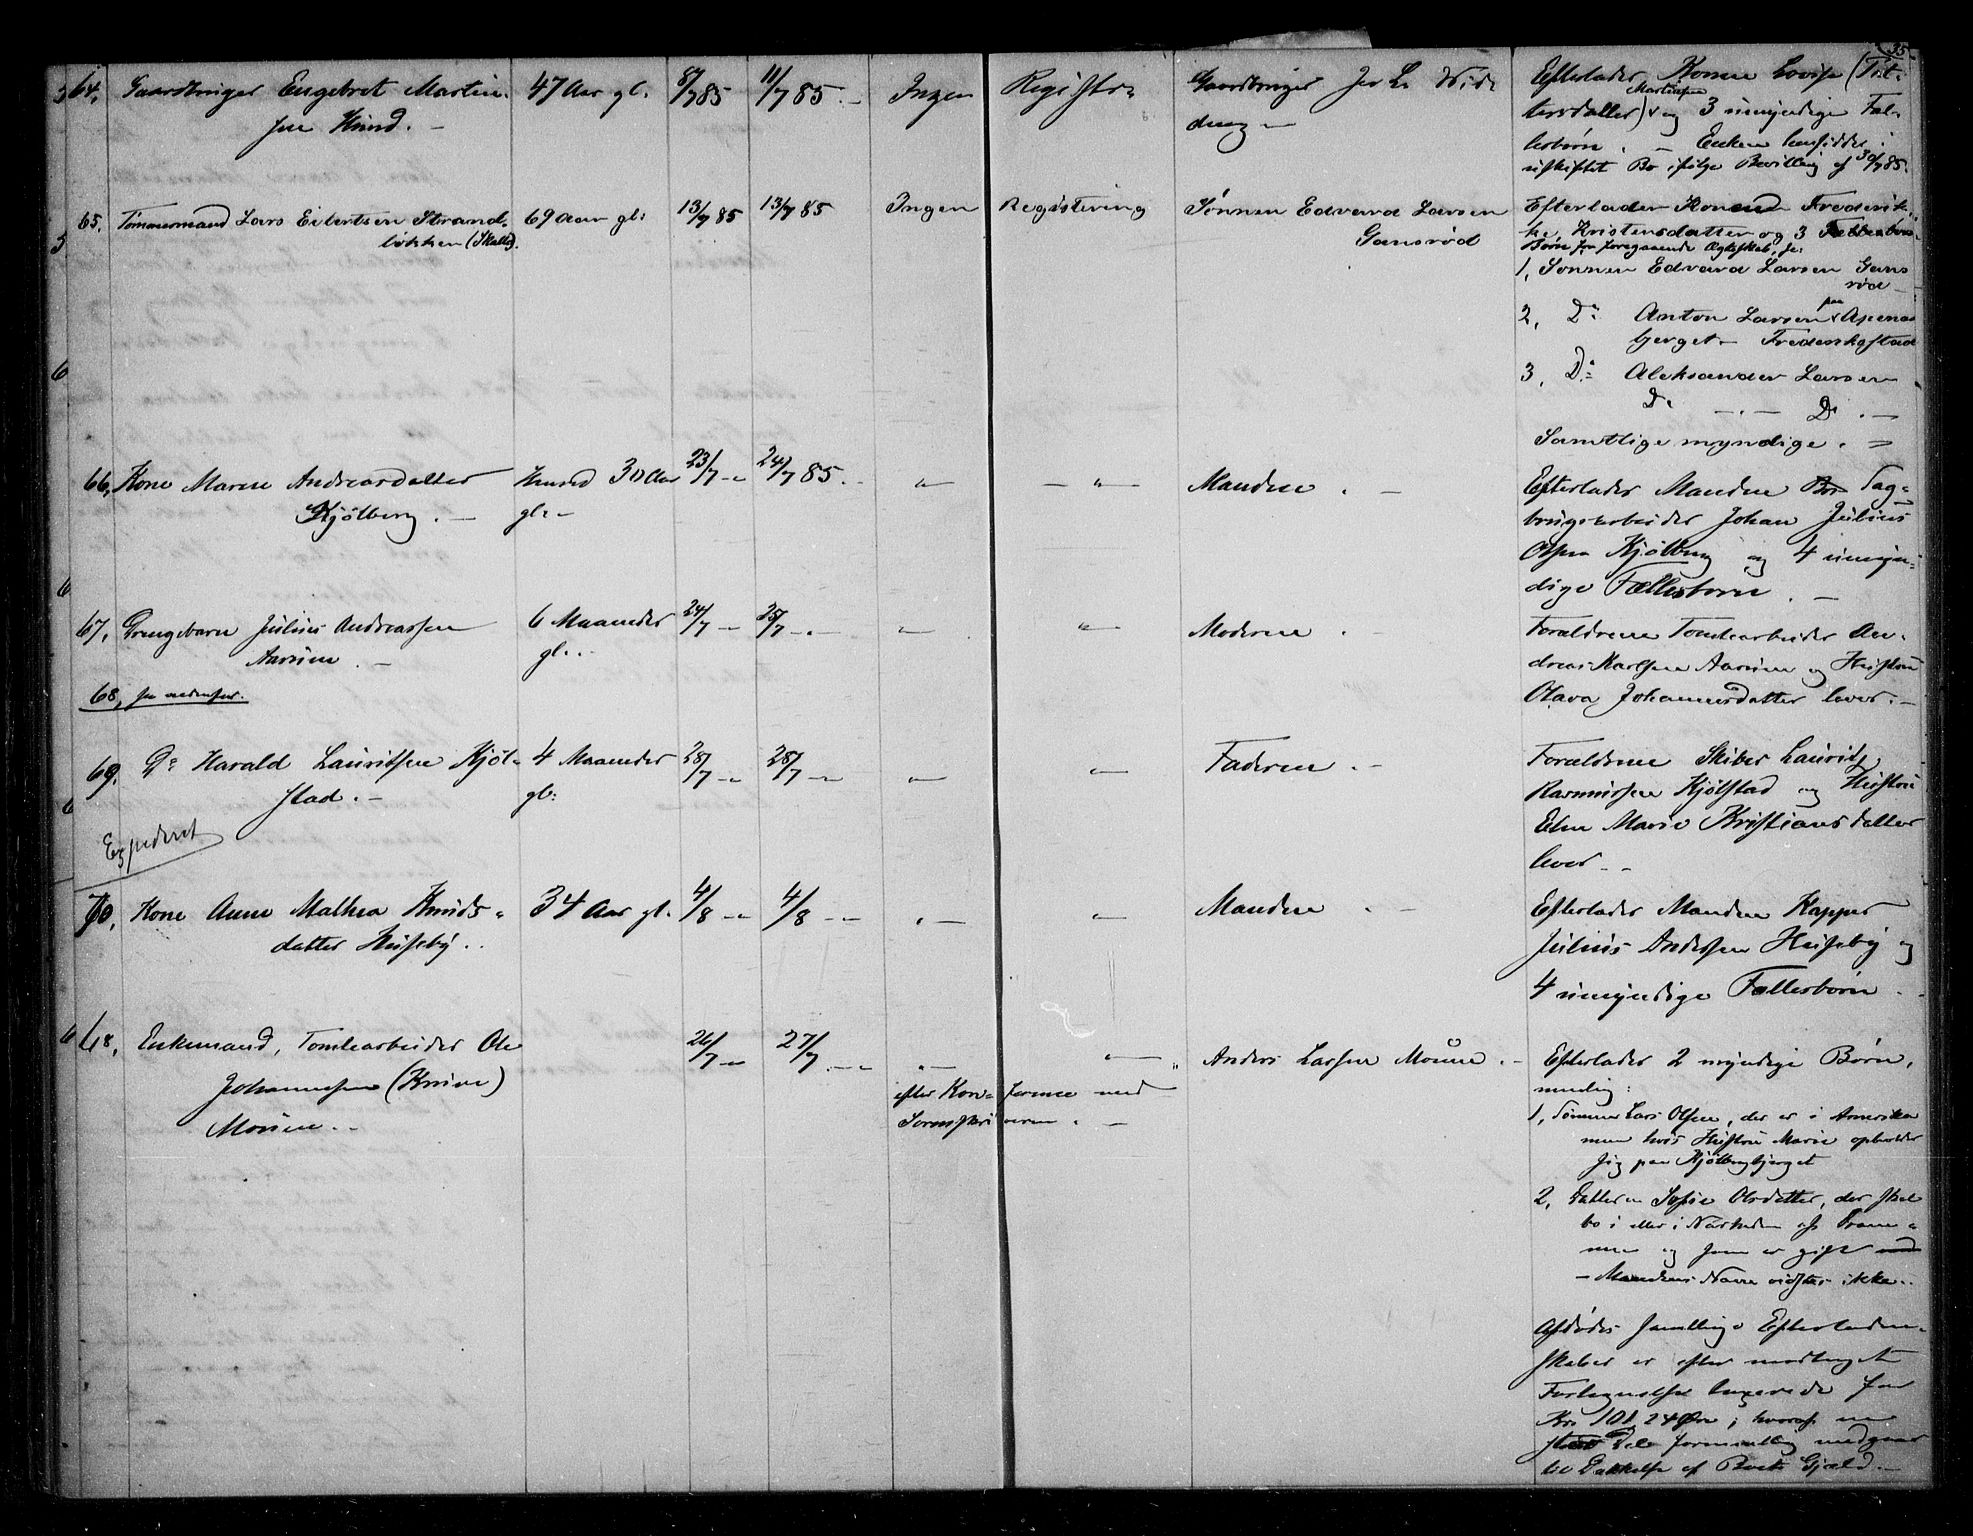 35
64. Gaardbruger Engebret Martin-
sen Hund. —
47 Aar gl.
8/7 85
11/7 85. —
Ingen Registr=
Gaardbruger
Efterlader Konen Lovise (Pet-
tersdatter) Martinsen og 3 umyndige Fæl-
lesbørn. — Enken hensidder i
uskiftet Bo ifølge Bevilling af 30/7 85.
65. Tømmermand Lars Eilertsen Strand-
løkken (Skalle).
69 Aar gl:
13/7 85
13/7 85
Ingen Registering
Sønnen Edvard Larsen
Gansrød
Efterlader Konen Frederik-
ke Kristensdatter og 3
Børn fra foregaaende Ægteskab, se:
1, Sønnen Edvard Larsen Gans
rød —
2, Do Anton Larsen paa Apenæs
bjerget — Frederikstad
3, Do Aleksander Larsen
Do — . — Do . —
Samtlige myndige. =
66, Kone Maren Andreasdatter
Kjølberg. —
Hunsd 30 Aar
gl: —
23/7 —
24/7 85. —
— " —
Manden . —
Efterlader Manden Sag-
brugsarbeider Johan Julius
Olsen Kjølberg og 4 umyn-
dige Fællesbørn . —
67, Drengebarn Julius Andreassen
Aarum . —
6 Maaneder
gl. .
24/7 —
25/7 — . —
— " —
Moderen . —
Forældrene Tomtearbeider An-
dreas Karlsen Aarum og Hustru
Olava Johannesdatter lever. —
68, se nedenfor.
69. Do Harald Lauritsen Kjøl-
stad. —
4 Maaneder
gl:
28/7 —
28/7 —
— " —
Faderen . —
Forældrene Skiber Laurits
Rasmussen Kjølstad og Hustru
Elen Marie Kristiansdatter
lever —
Expederet
70. Kone Anne Mathea Knuds-
datter Huseby . .
34 Aar gl.
4/8 —
4/8 —
— " —
Manden . —
Efterlader Manden Kapper
Julius Andersen Huseby og
4 umyndige Fællesbørn .
68, Enkemand, Tomtearbeider Ole
Johannesen (Knive)
Moum. —
26/7 —
27/7 . —
— " —
efter Kon-ference med
Sorenskriveren . —
Anders Larsen Moum . —
Efterlader 2 myndige Børn,
nemlig:
1, Sønnen Lars Olsen, der er i Amerika
men hvis Hustru Marie opholder
sig paa Kjølbergbjerget
2, Datteren Sofie Olsdatter, der skal
bo i eller i Nærheden af Dram-
men og som er gift med
— Mandens Navn vidstes ikke. .
Afdødes samtlige Efterladen-
skaber er efter modtaget
Fortegnelse
Kr. 101 24 Øre, hvoraf en
stor Del formentlig medgaar
til Dækkelse af Boets Gjæld. —